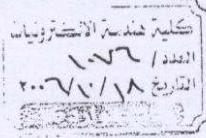 كلية هندسة الالكترونيات
العدد / ١٠٧٦
التاريخ ٢٠٠٦/١٠/١٨